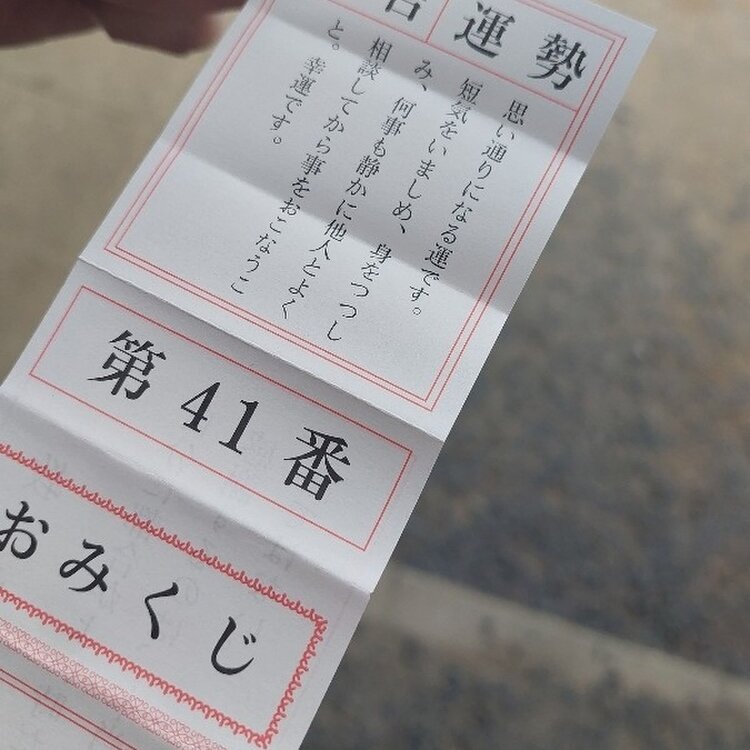 吉 運勢
思い通りになる運です。
短気をいましめ、身をつつし
み、何事も静かに他人とよく
相談してから事をおこなうこ
と。
幸運です。
第41番
おみくじ